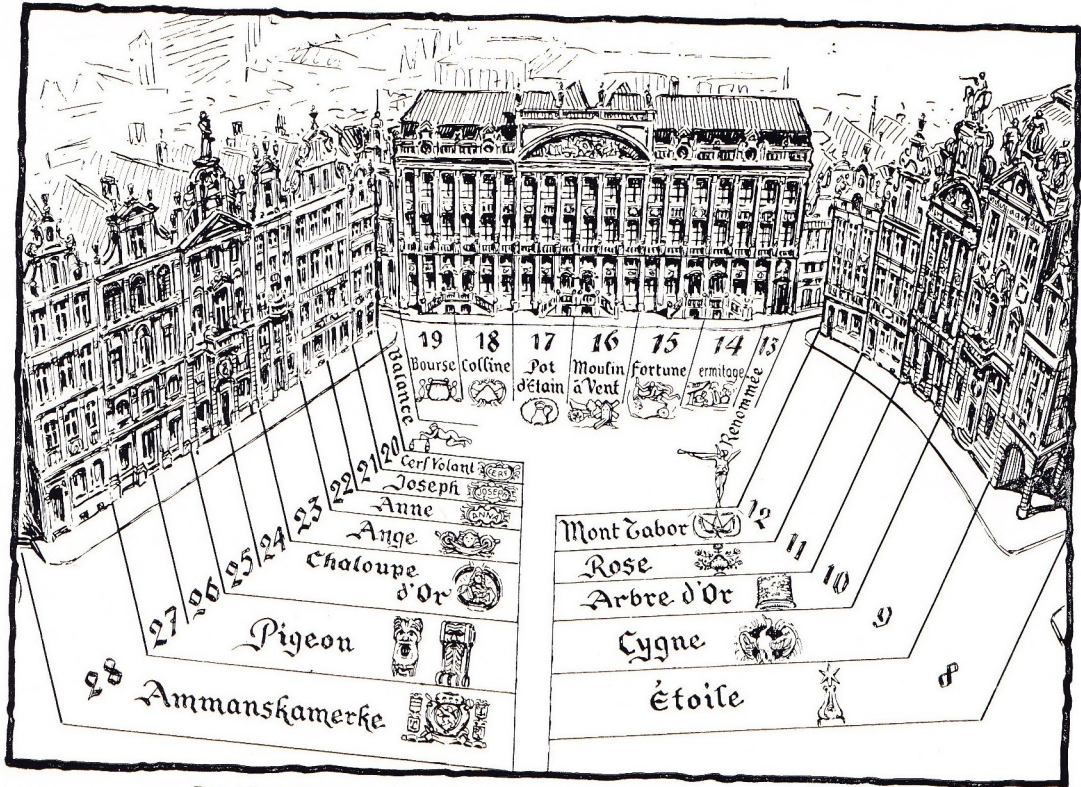 19
Bourse
18
Colline
17
Pot
d'étain
16
Moulin
à Vent
15
Fortune
14
ermitage
13
Renommée
Balance
20
Cerf Volant
CERF
21
Joseph
JOSEPH
22
Anne
ANNA
23
Ange
24
25
Chaloupe
d'Or
26
27
Pigeon
28
Ammanskamerke
Mont Tabor
12
Rose
11
Arbre d'Or
10
Cygne
9
Étoile
8